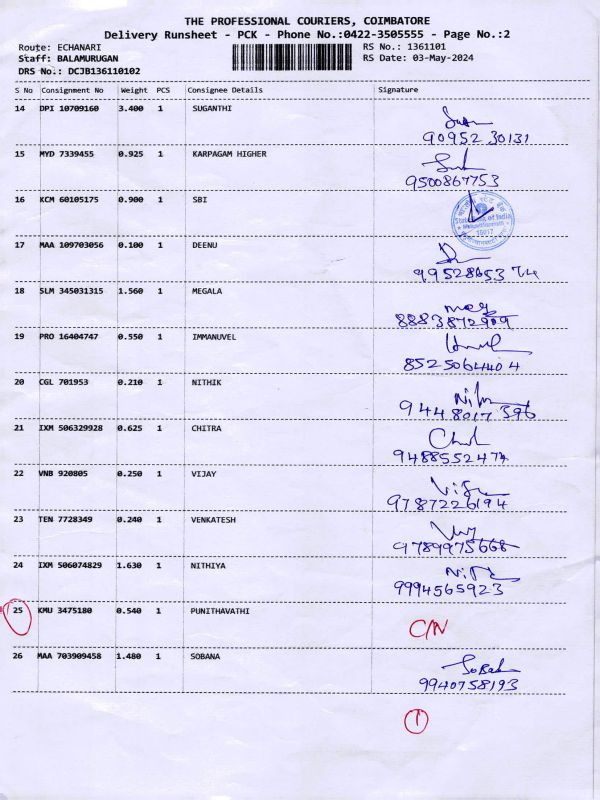 THE PROFESSIONAL COURIERS, COIMBATORE
Delivery Runsheet - PCK - Phone No.:0422-3505555 - Page No.:2
Route: ECHANARI RS No.: 1361101
Staff: BALAMURUGAN RS Date: 03-May-2024
DRS No.: DCJB136110102
S No Consignment No Weight PCS Consignee Details Signature
14 DPI 10709160 3.400 1 SUGANTHI
90952 30131
15 MYD 7339455 0.925 1 KARPAGAM HIGHER
9500867753
16 KCM 60105175 0.900 1 SBI
State Bank of India
17 MAA 109703056 0.100 1 DEENU
99528653 74
18 SLM 345031315 1.560 1 MEGALA
meg
8883872909
19 PRO 16404747 0.550 1 IMMANUVEL
8525064404
20 CGL 701953 0.210 1 NITHIK
9448017 396
21 IXM 506329928 0.625 1 CHITRA
9488552474
22 VNB 920805 0.250 1 VIJAY
9787226194
23 TEN 7728349 0.240 1 VENKATESH
9789975668
24 IXM 506074829 1.630 1 NITHIYA
9994565923
25 KMU 3475180 0.540 1 PUNITHAVATHI
C/N
26 MAA 703909458 1.480 1 SOBANA
9940758193
1